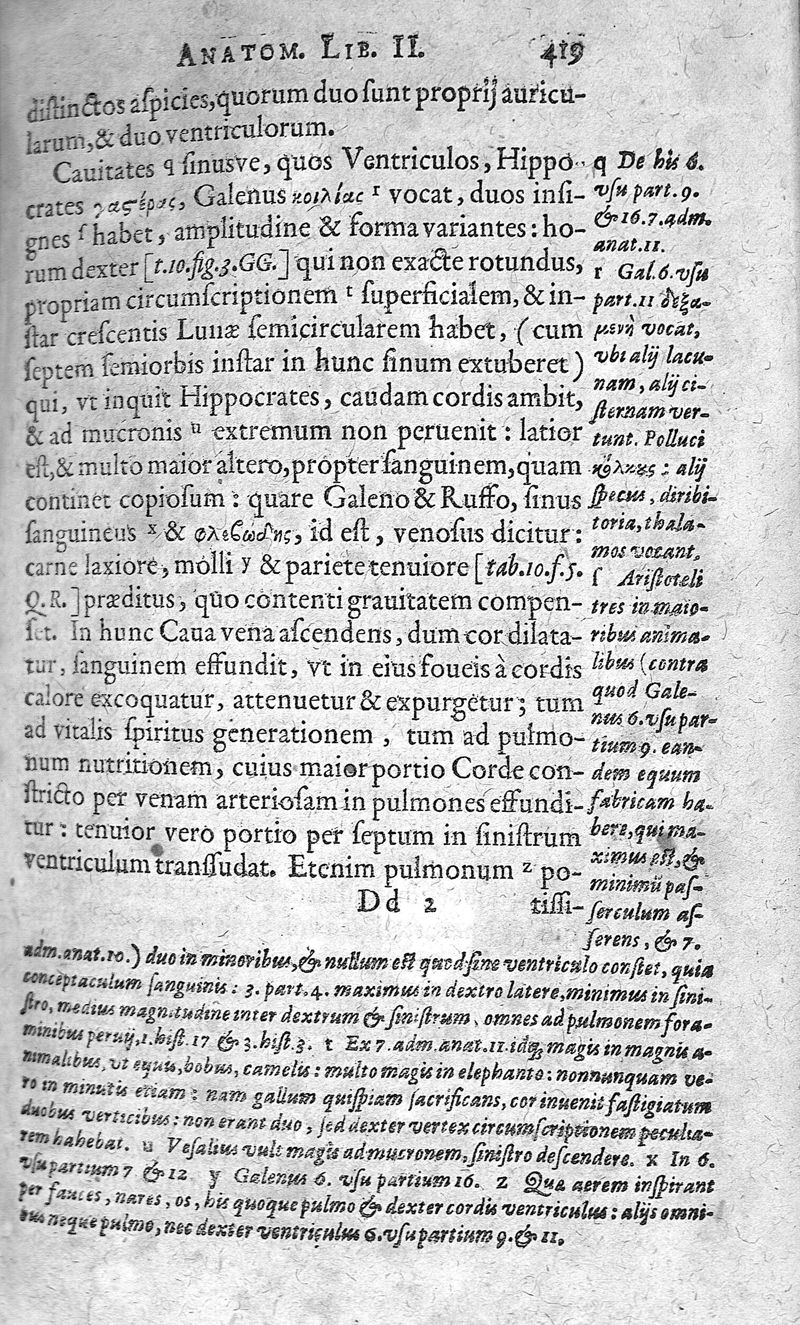 ANATOM. LIB. II. 419
distinctos aspicies, quorum duo sunt proprij auricu-
larum, & duo ventriculorum.
Cauitates q sinusve, quos Ventriculos, Hippo-
crates γαςέρας, Galenus κοιλίας r vocat, duos insi-
gnes ſ habet, amplitudine & forma variantes: ho-
rum dexter [t.10.fig.3.GG.] qui non exacte rotundus,
propriam circumscriptionem t superficialem, & in-
star crescentis Lunæ semicircularem habet, (cum
septem semiorbis instar in hunc sinum extuberet)
qui, vt inquit Hippocrates, caudam cordis ambit,
& ad mucronis u extremum non peruenit: latior
est, & multo maior altero, propter sanguinem, quam
continet copiosum: quare Galeno & Ruffo, sinus
sanguineus x & φλεβώδης, id est, venosus dicitur:
carne laxiore, molli y & pariete tenuiore [tab.10.f.5.
Q.R.] præditus, quo contenti grauitatem compen-
set. In hunc Caua vena ascendens, dum cor dilata-
tur, sanguinem effundit, vt in eius foueis à cordis
calore excoquatur, attenuetur & expurgetur; tum
ad vitalis spiritus generationem, tum ad pulmo-
num nutritionem, cuius maior portio Corde con-
stricto per venam arteriosam in pulmones effundi-
tur: tenuior vero portio per septum in sinistrum
ventriculum transsudat. Etenim pulmonum z po-
Dd 2 tissi-
q De his 6.
vsu part. 9.
& 16. 7. adm.
anat. 11.
r Gal. 6. vsu
part. 11 δεξα-
μενὴ vocat,
vbi alij lacu-
nam, alij ci-
sternam ver-
tunt. Polluci
alij
specus, diribi-
toria, thala-
mos vocant.
ſ Aristoteli
tres in maio-
ribus anima-
libus (contra
quod Gale-
nus 6. vsu par-
tium 9. ean-
dem equum
fabricam ha-
bere, qui ma-
ximus est, &
minimũ pas-
serculum as-
serens, & 7.
adm. anat. 10.) duo in minoribus, & nullum est quod sine ventriculo constet, quia
conceptaculum sanguinis: 3. part. 4. maximus in dextro latere, minimus in sini-
stro, medius magnitudine inter dextrum & sinistrum, omnes ad pulmonem fora-
minibus peruij, 1. hist. 17 & 3. hist. 3. t Ex 7. adm. anat. 11. idq; magis in magnis a-
nimalibus, vt equis, bobus, camelis: multo magis in elephanto: nonnunquam ve-
ro in minutis etiam: nam gallum quispiam sacrificans, cor inuenit fastigiatum
duobus verticibus: non erant duo, sed dexter vertex circumscriptionem peculia-
rem habebat. u Vesalius vult magis ad mucronem, sinistro descendere. x In 6.
vsu partium 7 & 12 y Galenus 6. vsu partium 16. z Quæ aerem inspirant
per fauces, nares, os, his quoque pulmo & dexter cordis ventriculus: alijs omni-
bus neque pulmo, nec dexter ventriculus 6. vsu partium 9. & 11.